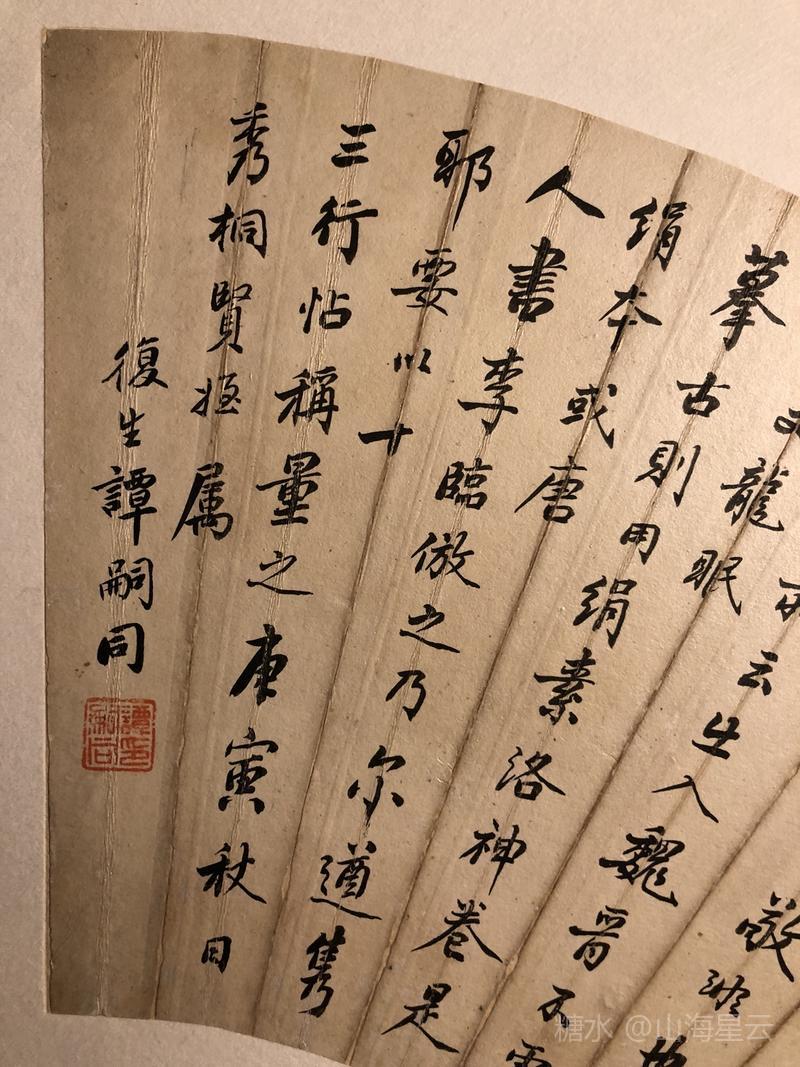 龍眠
云出入魏晉不
摹古則用絹素洛神卷是
絹本或唐
人書李臨倣之乃尔遒雋
耶要以十
三行帖稱量之庚寅秋日
秀桐賢姪属
復生譚嗣同
譚嗣同印
糖水 @山海星云